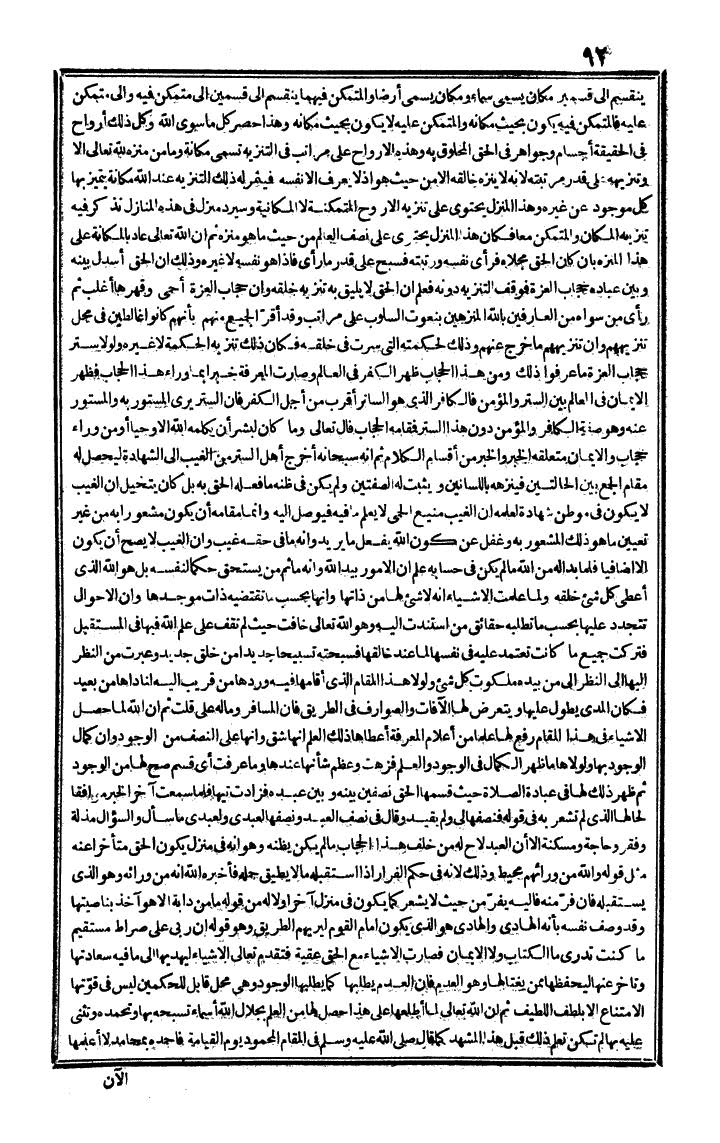 ٩٢
ينقسم الى قسمين مكان يسمى سماء ومكان يسمى أرضا والمتمكن فيهما ينقسم الى قسمين الى متمكن فيه والى متمكن
عليه فالمتمكن فيه يكون بحيث مكانه والمتمكن عليه لا يكون بحيث مكانه وهذا حصر كل ماسوى الله وكل ذلك أرواح
فى الحقيقة أجسام وجواهر فى الحق المخلوق به وهذه الارواح على مراتب فى التنزيه تسمى مكانة وما من منزه لله تعالى الا
وتنزيهه على قدر مرتبته لانه لا ينزه خالقه الا من حيث هو اذ لا يعرف الا نفسه فيثمر له ذلك التنزيه عند الله مكانة يتميز بها
كل موجود عن غيره وهذا المنزل يحتوى على تنزيه الارواح المتمكنة لا المكانية وسيرد منزل فى هذه المنازل نذكر فيه
تنزيه المكان والمتمكن معا فكان هذا المنزل يحتوى على نصف العالم من حيث ما هو منزه ثم ان الله تعالى عاد بالمكانة على
هذا المنزه بان كان الحق مجلاه فرأى نفسه ورتبته فسبح على قدر ما رأى فاذا هو نفسه لا غيره وذلك ان الحق أسدل بينه
وبين عباده حجاب العزة فوقف التنزيه دونه فعلم ان الحق لا يليق به تنزيه خلقه وان حجاب العزة أحمى وقهرها أغلب ثم
رأى من سواه من العارفين بالله المنزهين بنعوت السلوب على مراتب وقد أقر الجميع منهم بأنهم كانوا غالطين فى محل
تنزيههم وان تنزيههم ما خرج عنهم وذلك لحكمته التى سرت فى خلقه فكان ذلك تنزيه الحكمة لا غيره ولولا ستر
حجاب العزة ما عرفوا ذلك ومن هذا الحجاب ظهر الكفر فى العالم وصارت المعرفة خبرا بما وراء هذا الحجاب فظهر
الايمان فى العالم بين الستر والمؤمن فالكافر الذى هو الساتر أقرب من أجل الكفر فان الستر يرى المستور به والمستور
عنه وهو صفة الكافر والمؤمن دون هذا الستر فقامه الحجاب قال تعالى وما كان لبشر أن يكلمه الله الا وحيا أو من وراء
حجاب والايمان متعلقه الخبر والخبر من أقسام الكلام ثم انه سبحانه أخرج أهل الستر من الغيب الى الشهادة ليحصل له
مقام الجمع بين الحالتين فينزهه باللسانين ويثبت له الصفتين ولم يكن فى ظنه ما فعله الحق به بل كان يتخيل ان الغيب
لا يكون فى موطن شهادة لعلمه ان الغيب منيع الحمى لا يعلم ما فيه فيوصل اليه وانما مقامه أن يكون مشعورا به من غير
تعيين ما هو ذلك المشعور به وغفل عن كون الله يفعل ما يريد وانه ما فى حقه غيب وان الغيب لا يصح أن يكون
الا اضافيا فلما بدا له من الله مالم يكن فى حسابه علم ان الامور بيد الله وانه ما ثم من يستحق حكما لنفسه بل هو الله الذى
أعطى كل شئ خلقه ولما علمت الاشياء انه لا شئ لها من ذاتها وانها بحسب ما تقتضيه ذات موجدها وان الاحوال
تتجدد عليها بحسب ما تطلبه حقائق من استندت اليه وهو الله تعالى خافت حيث لم تقف على علم الله فيها فى المستقبل
فتركت جميع ما كانت تعتمد عليه فى نفسها لما عند خالقها فسبحته تسبيحا جديدا من خلق جديد وعبرت من النظر
اليها الى النظر الى من بيده ملكوت كل شئ ولولا هذا المقام الذى أقامها فيه وردها من قريب اليه لناداها من بعيد
فكان المدى يطول عليها ويتعرض لها الآفات والصوارف فى الطريق فان المسافر وماله على قلت ثم ان الله لما حصل
الاشياء فى هذا المقام رفع لها علما من أعلام المعرفة أعطاها ذلك العلم انها شق وانها على النصف من الوجود وان كمال
الوجود بها ولولاها ما ظهر الكمال فى الوجود والعلم فزهت وعظم شأنها عندها وما عرفت أى قسم صح لها من الوجود
ثم ظهر ذلك لها فى عبادة الصلاة حيث قسمها الحق نصفين بينه وبين عبده فزادت تيها فلما سمعت آخر الخبر موافقا
لحالها الذى لم تشعر به فى قوله فنصفها لى ولم يقيد وقال فى نصف العبد ونصفها لعبدى ولعبدى ما سأل والسؤال مذلة
وفقر وحاجة ومسكنة الا أن العبد لاح له من خلف هذا الحجاب مالم يكن يظنه وهو انه فى منزل يكون الحق متأخرا عنه
مثل قوله والله من ورائهم محيط وذلك لانه فى حكم الفرار اذا استقبله ما لا يطيق حمله فأخبره الله انه من ورائه وهو الذى
يستقبله فان فر منه فاليه يفر من حيث لا يشعر كما يكون فى منزل آخر أولا له من قوله ما من دابة الا هو آخذ بناصيتها
وقد وصف نفسه بأنه الهادى والهادى هو الذى يكون امام القوم ليريهم الطريق وهو قوله ان ربى على صراط مستقيم
ما كنت تدرى ما الكتاب ولا الايمان فصارت الاشياء مع الحق عقبة فتقدم تعالى الاشياء ليهديها الى ما فيه سعادتها
وتاخر عنها ليحفظها ممن يغتالها وهو العدم فان العدم يطلبها كما يطلبها الوجود وهى محل قابل للحكمين ليس فى قوتها
الامتناع الا بلطف اللطيف ثم ان الله تعالى لما أطلعها على هذا حصل لها من العلم بجلال الله أسماء تسبحه بها وتحمده وتثنى
عليه بها لم تكن تعلم ذلك قبل هذا المشهد كما قال صلى الله عليه وسلم فى المقام المحمود يوم القيامة فاحمده بمحامد لا أعلمها
الآن